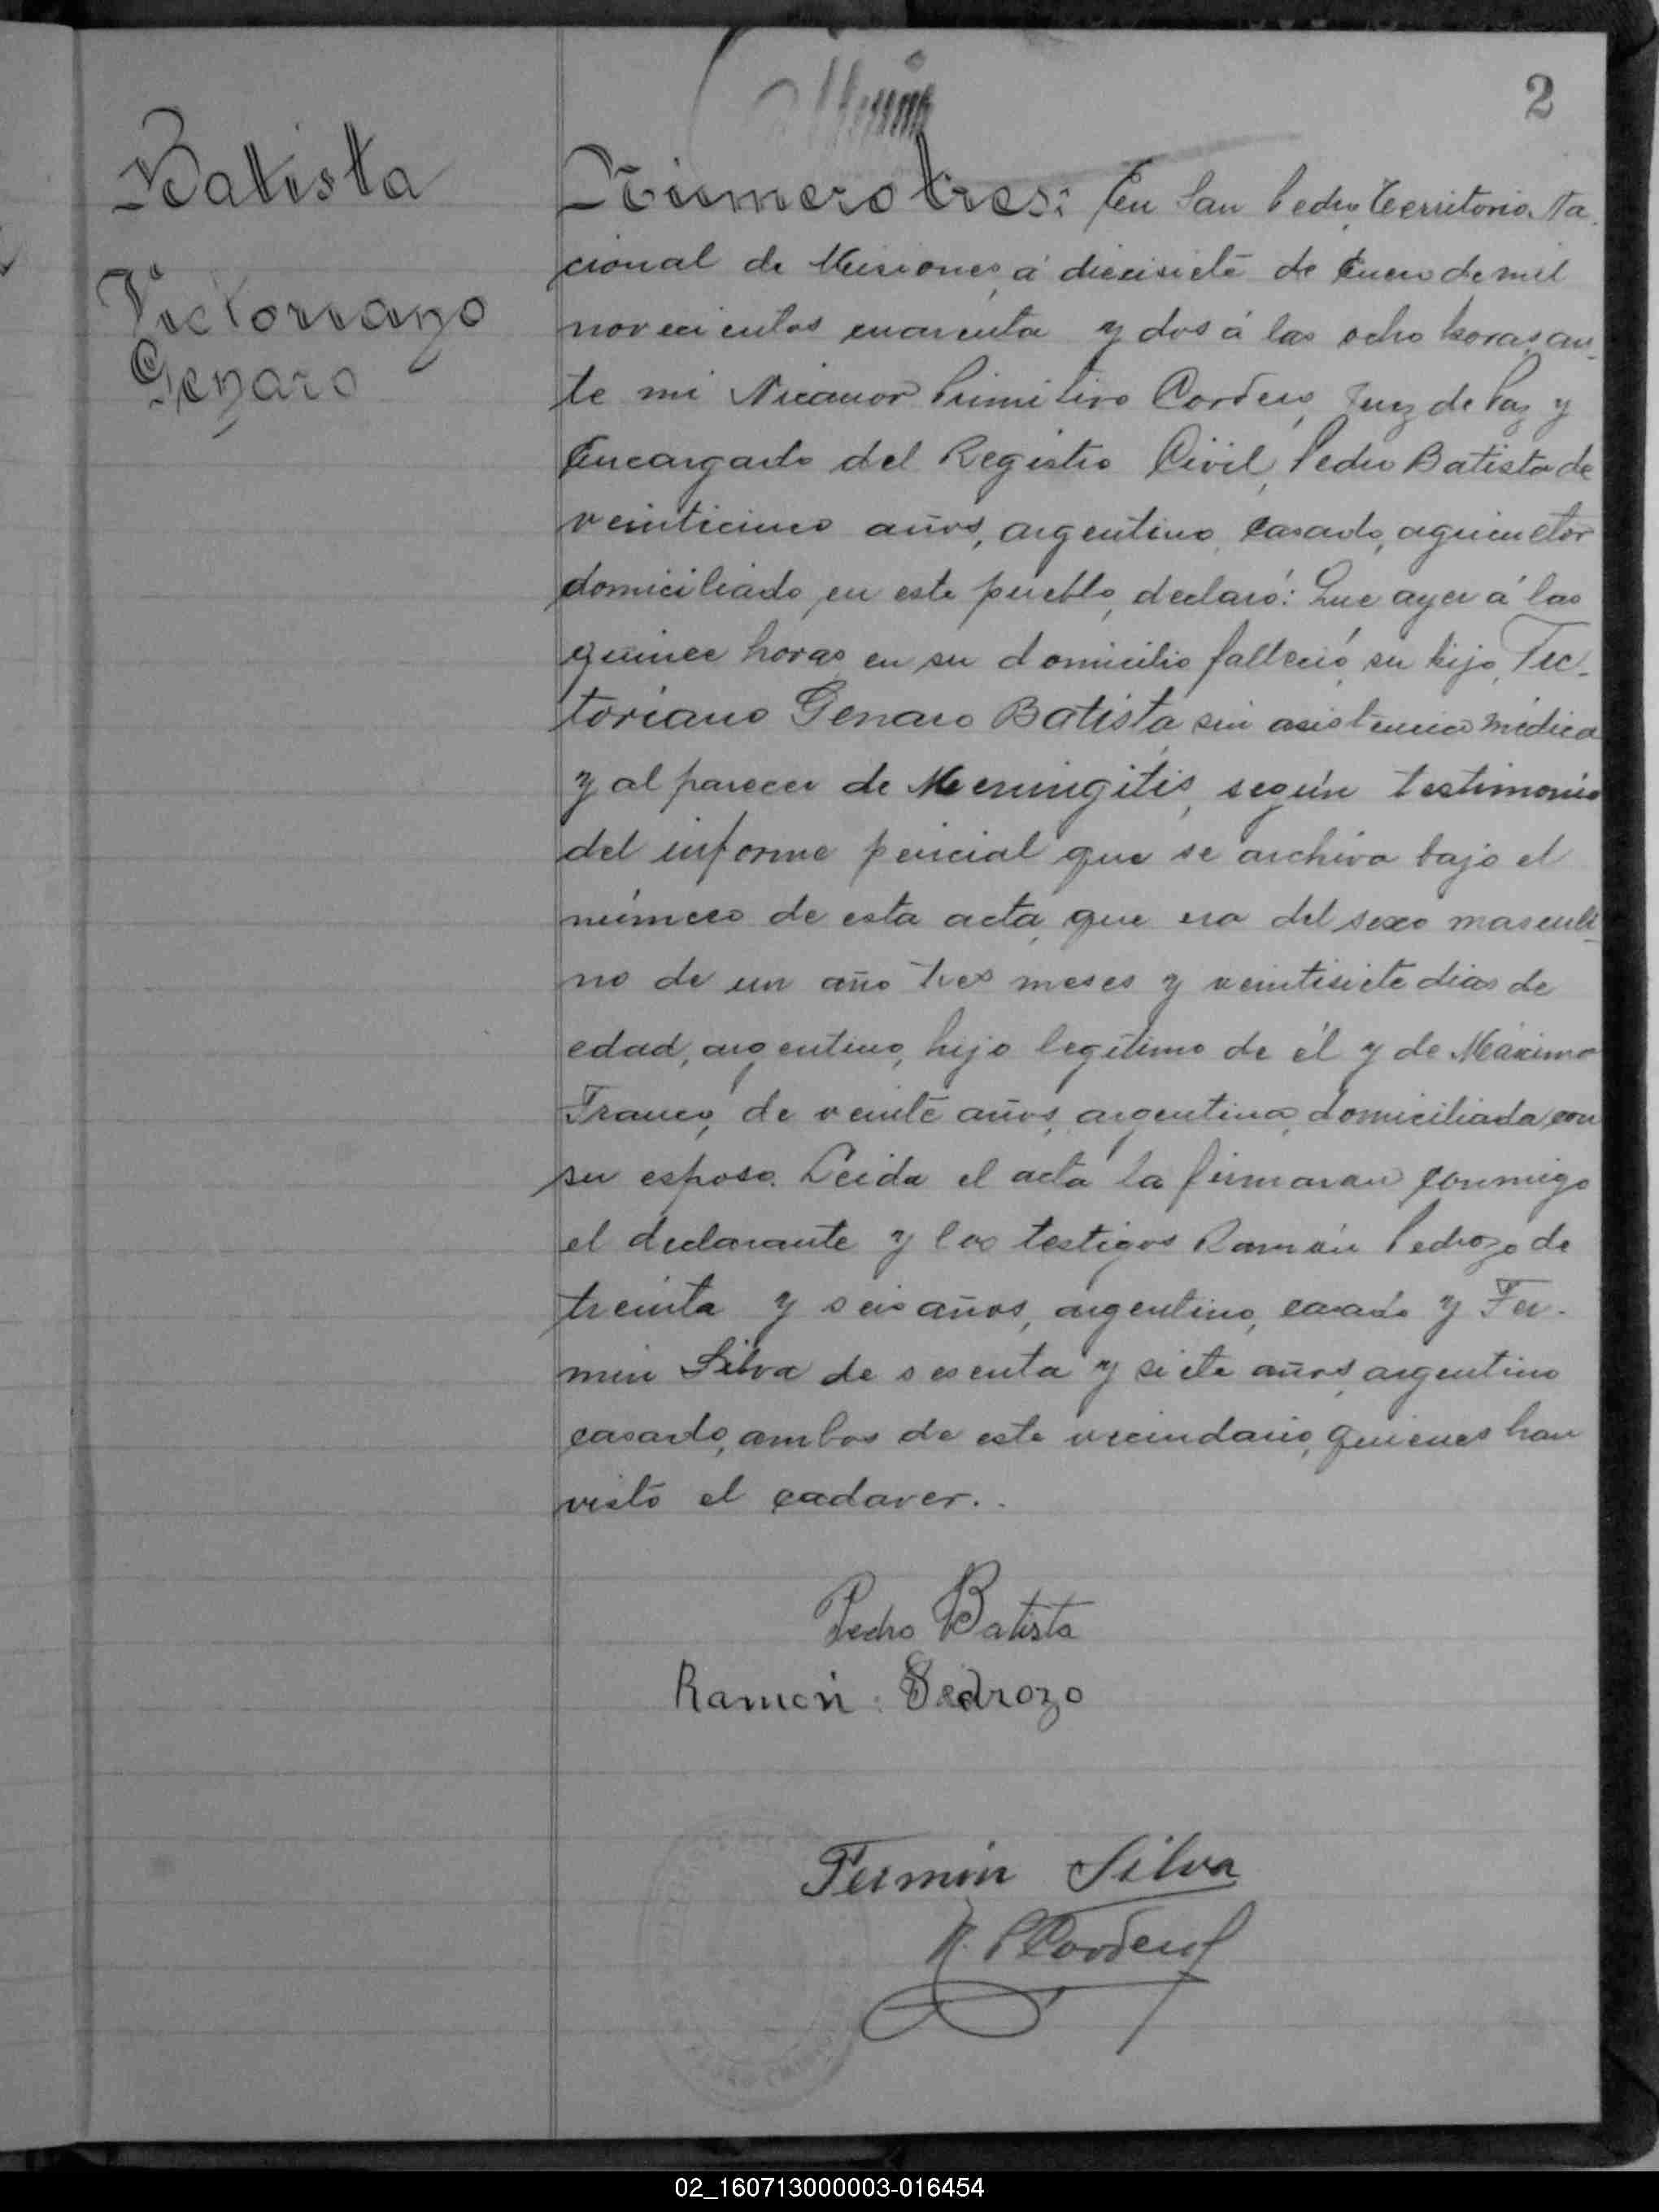 2
Batista
Victoriano
Genaro
Número tres: En San Pedro, Territorio Na-
cional de Misiones, á diecisiete de Enero de mil
novecientos cuarenta y dos á las ocho horas, an-
te mi Nicanor Primitivo Cordero, Juez de Paz y
Encargado del Registro Civil, Pedro Batista de
veinticinco años, argentino, casado, agricultor
domiciliado en este pueblo, declaró: Que ayer á las
quince horas en su domicilio falleció su hijo, Vic-
toriano Genaro Batista sin asistencia médica
y al parecer de Meningitis, según testimonio
del informe pericial que se archiva bajo el
número de esta acta, que era del sexo masculi-
no de un año tres meses y veintisiete dias de
edad, argentino, hijo legítimo de él y de Máxima
Franco, de veinte años, argentina, domiciliada con
su esposo. Leida el acta la firmaran conmigo
el declarante y los testigos Ramón Pedrozo de
treinta y seis años, argentino, casado y Fer-
min Silva de sesenta y siete años, argentino
casado, ambos de este vecindario, quienes han
visto el cadaver..
Pedro Batista
Ramón Pedrozo
Fermin Silva
N. P. Cordero
02_160713000003-016454